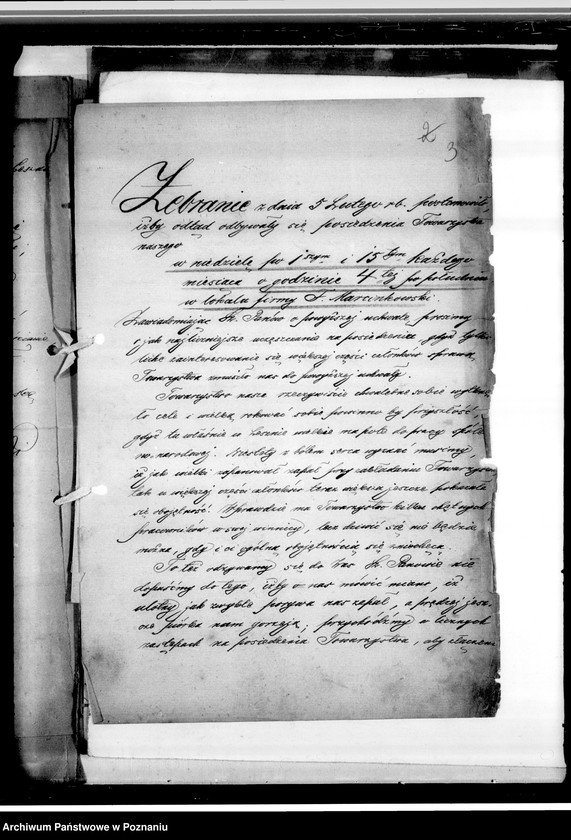 2
3
Zebranie z dnia 5 Lutego rb. postanowiło
iżby odtąd odbywały się posiedzenia Towarzystwa
naszego
w niedzielę po 1szym i 15tym każdego
miesiąca o godzinie 4tej po południu
w lokalu firmy F. Marcinkowski.
Zawiadamiając Sz. Panów o powyższej uchwale, prosimy
o jak najliczniejsze uczęszczanie na posiedzenia, gdyż tylko
liche zainteresowanie się większej części członków sprawą
Towarzystwa zmusiło nas do powyższej uchwały.
Towarzystwo nasze rzeczywiście chwalebne sobie wytknęło
to cele i wielką rokować sobie powinno by przyszłość,
gdyż tu właśnie w Lesznie wielkie ma pole do pracy społe
no. narodowej. Niestety z bólem serca wyznać musimy
iż jak wielki zapanował zapał przy zakładaniu Towarzystwa
tak u większej części członków teraz większa jeszcze pokazała
się obojętność. Wprawdzie ma Towarzystwo kilku chętnych
pracowników w swej winnicy, lecz dziwić się nie będzie
można, gdy i ci ogólną obojętnością się zniechęcą.
To też odzywamy się do Was Sz. Panowie nie
dopuśćmy do tego, iżby o nas mówić miano, iż
ulotny jak zwykle porywa nas zapał, a prędzej jesz
cze piórka nam gorzeją; przychódźmy w licznych
zastępach na posiedzenia Towarzystwa, aby
Archiwum Państwowe w Poznaniu